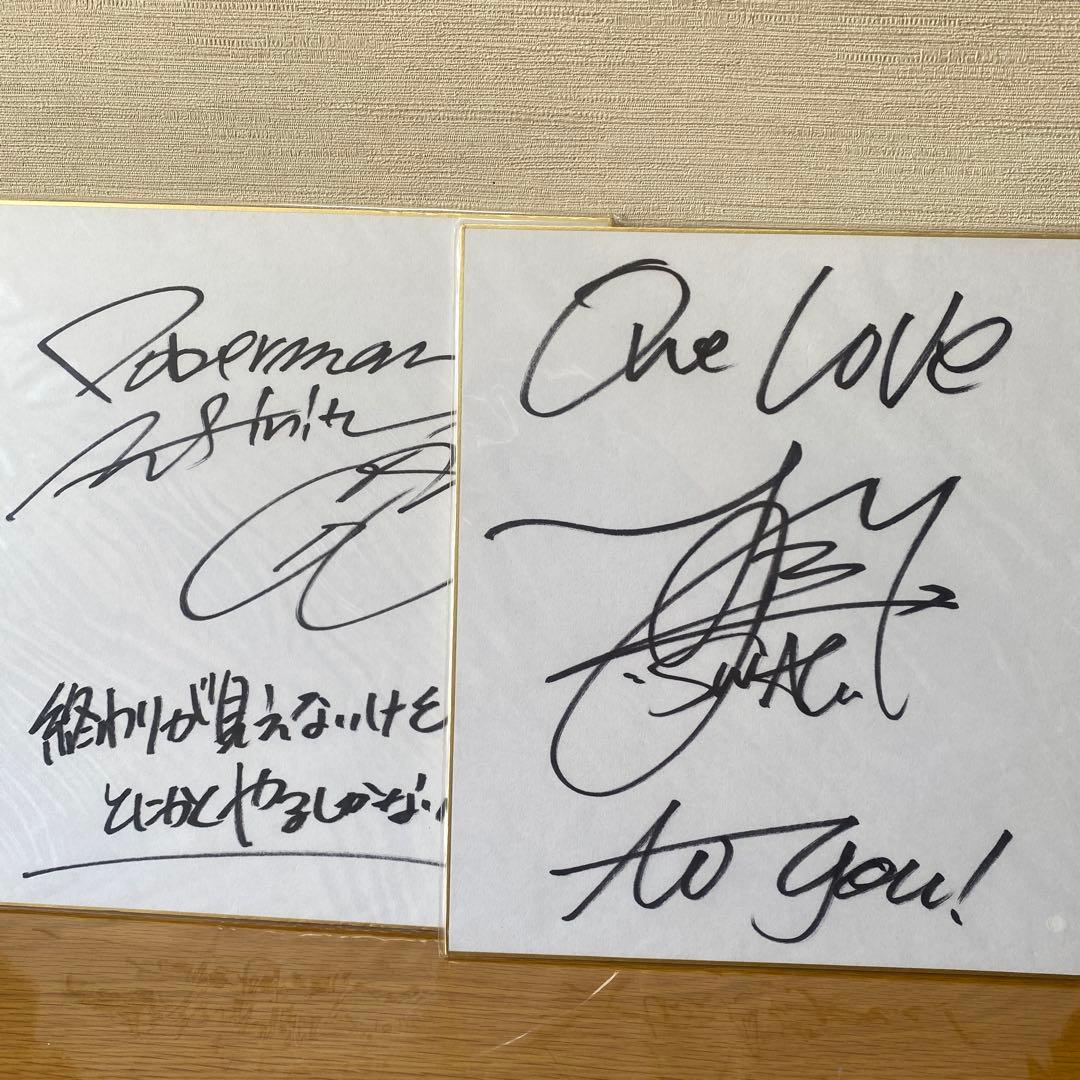 Doberman
Infinity
終わりが見えないけど
とにかくやるしかない
One Love
SWAY
to you!